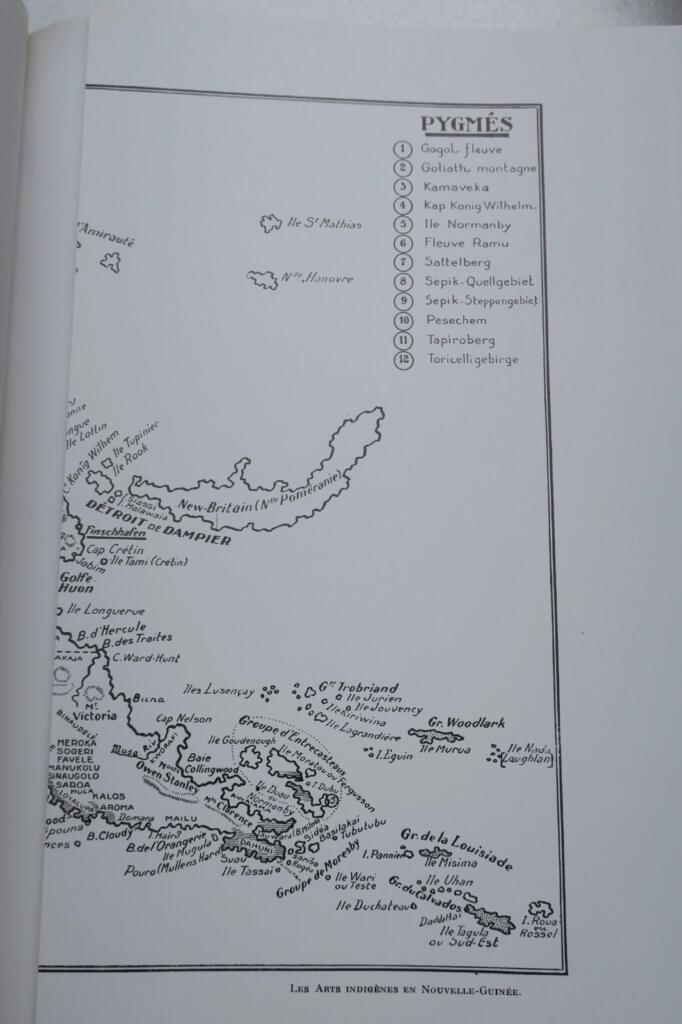 PYGMÉS
1 Gogol fleuve
2 Goliath montagne
3 Kamaveka
4 Kap Konig Wilhelm
5 Ile Normanby
6 Fleuve Ramu
7 Sattelberg
8 Sepik-Quellgebiet
9 Sepik-Steppengebiet
10 Pesechem
11 Tapiroberg
12 Toricelligebirge
Ile St Mathias
d'Amirauté
Nlle Hanovre
Ile Lottin
Ile Tupinier
Ile Rook
C. Konig Wilhem
New-Britain (Nlle Poméranie)
Siassi
I. Malawaia
DÉTROIT DE DAMPIER
Finschhafen
Cap Crétin
Ile Tami (Crétin)
Jabim
Golfe
Huon
Ile Longuerue
B. d'Hercule
B. des Traites
C. Ward-Hunt
AKAJA
Mt
Victoria
Buna
Iles Lusençay
Gpe Trobriand
Ile Jurien
Ile Jouvency
Ile Kiriwina
Ile Lagrandière
Gr. Woodlark
Ile Murua
I. Eguin
Ile Nada
(Laughlan)
Cap Nelson
Groupe d'Entrecasteaux
Ile Goudenough
Ile Moratau ou Fergusson
I. Dubu
Ile Duau
ou
Normanby
BINANDELÉ
MEROKA
SOGERI
FAVELE
MANUKOLU
SINAUGOLO
SAROA
MULA
KALOS
LOYALUPU
AROMA
Musa
KORAFI
Baie
Collingwood
Monts
Owen Stanley
Mts Clarence
Domana
MAILU
B. Cloudy
I. Mairg
B. de l'Orangerie
Ile Mugula
Pouro (Mullens Hard)
DAHUNI
Suau
Ile Tassai
Sariba
Rogea
Sidea
Basilakai
Tubutubu
Groupe de Moresby
Ile Wari
ou Teste
Gr. de la Louisiade
I. Pannier
Ile Misima
Ile Uhan
Gr. du Calvados
Ile Duchateau
Ile Tagula
ou Sud-Est
I. Roua
ou
Rossel
Les Arts indigènes en Nouvelle-Guinée.